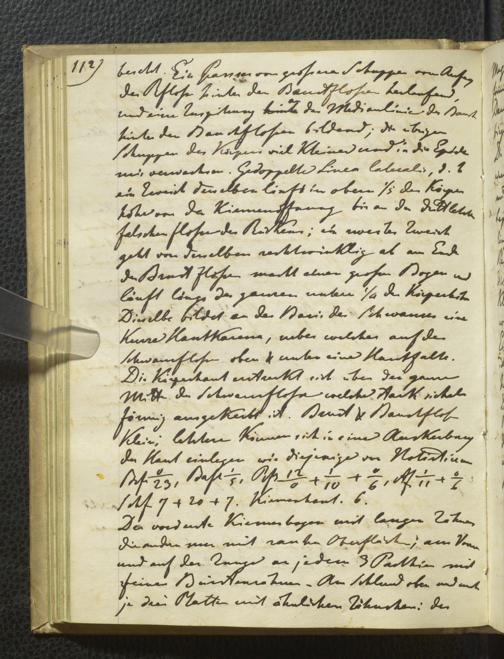 112)
besetzt. Ein Paar von grossen Schuppen vom Anfang
der Rflosse hinter den Bauchflossen herlaufend,
und eine Zuspitzung hinter der Medianlinie des Bauchs
hinter den Bauchflossen bildend; die übrigen
Schuppen des Körpers viel kleiner und in die Epider
mis verwachsen. Gedoppelte Linea lateralis, d. h
ein Zweig derselben läuft im obern 1/5 der Körper
höhe von der Kiemenöffnung bis an die drittletzte
falsche flosse des Rückens; ein zweiter Zweig
geht von derselben rechtwinklig ab am Ende
der Brustflossen macht einen grossen Bogen und
läuft längs des ganzen untern 1/4 der Körperhöhe
Dieselbe bildet an der Basis des Schwanzes eine
kurze Hautkarena, ueber welcher auf der
Schwanzflosse oben & unten eine Hautfalte.
Die Körperhaut erstreckt sich über die ganze
Mitte der Schwanzflosse welche stark sichel
förmig ausgekerbt ist. Brust & Bauchflosse
klein, letztere können sich in eine Auskerbung
der Haut einlegen wie diejenige von
Brf 0/23, Bafl 1/5, Rfl 12/0 + 1/10 + 0/6, Afl 1/11 + 0/6
Schfl 7 + 20 + 7. Kiemenhaut. 6.
Der vorderste Kiemenbogen mit langen Zähnen
die andern nur mit rauher Oberfläche; am Vomer
und auf der Zunge an jedem 3 Parthien mit
feinen Bürstenzähnen. Am Schlund oben und unten
je drei Platten mit ähnlichen Zähnchen: der